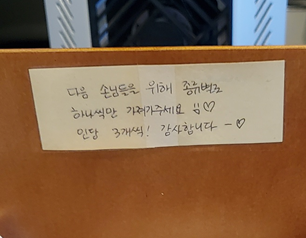 다음 손님들을 위해 종류별로
하나씩만 가져가주세요 !! ♡
인당 3개씩! 감사합니다 - ♡